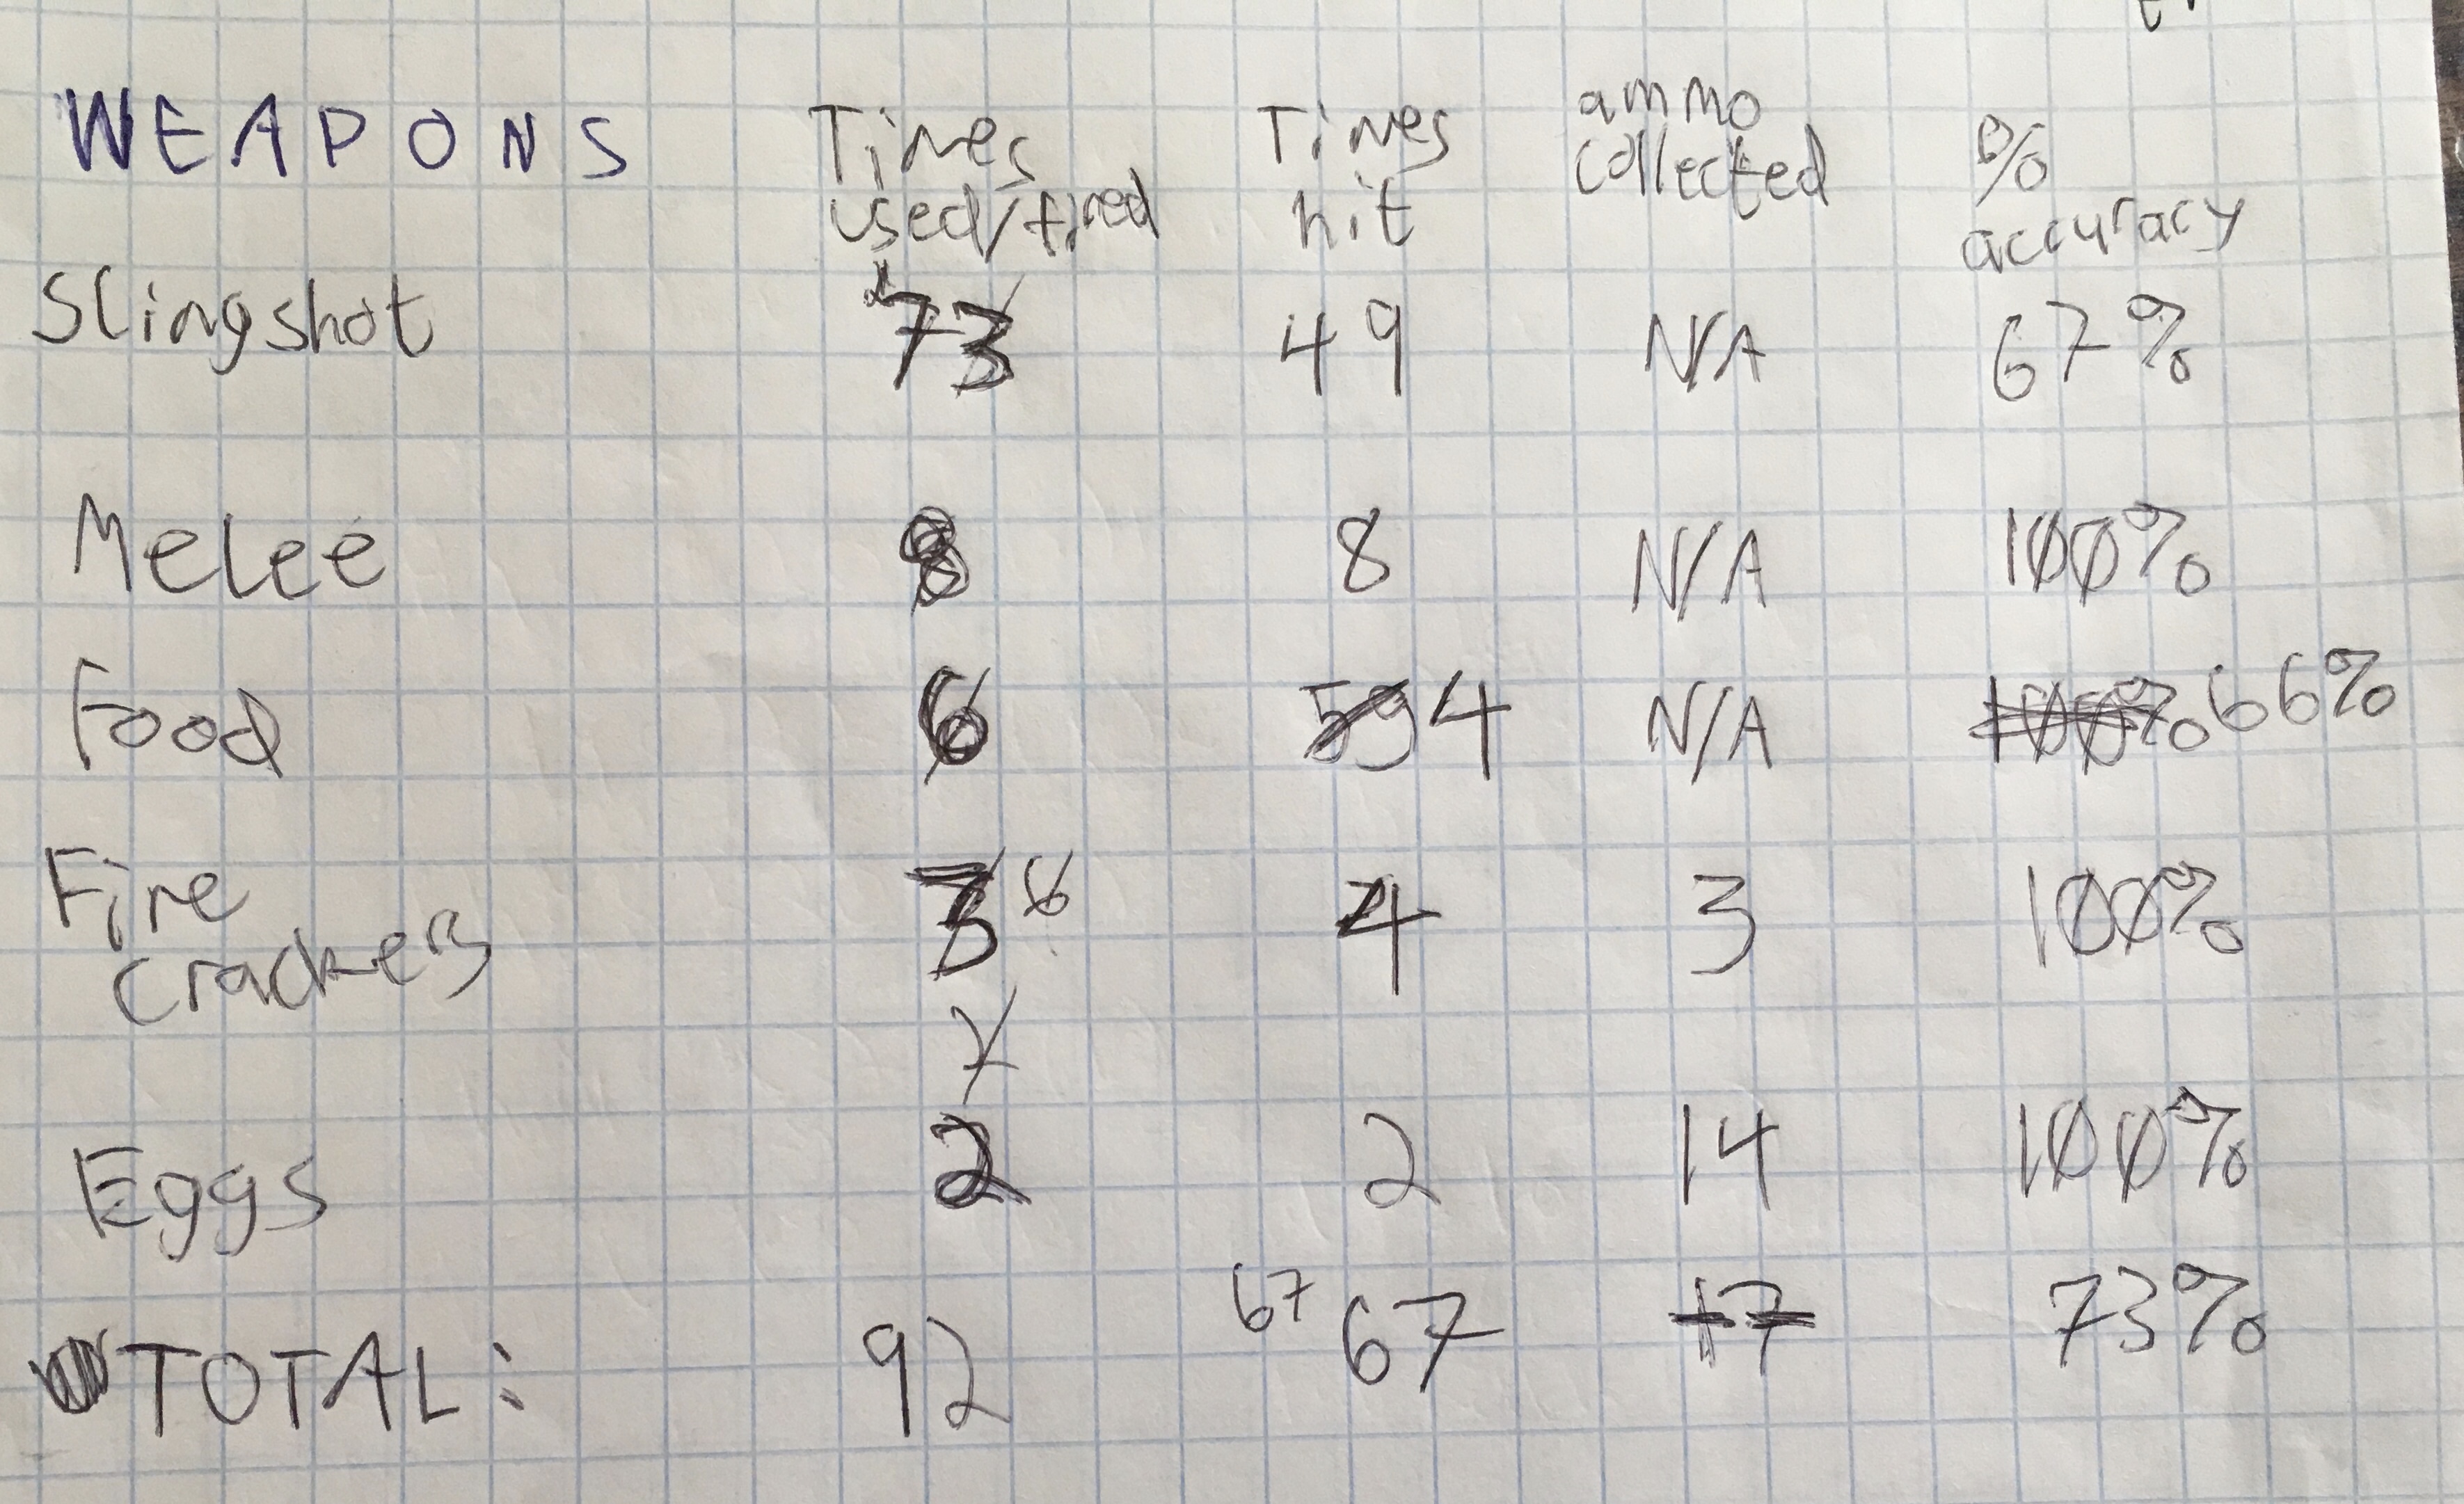 WEAPONS Times used/fired Times hit ammo collected % accuracy
Slingshot 73 49 N/A 67%
Melee 8 8 N/A 100%
Food 6 4 N/A 66%
Fire crackers 3 4 3 100%
Eggs 2 2 14 100%
TOTAL: 92 67 67 17 73%